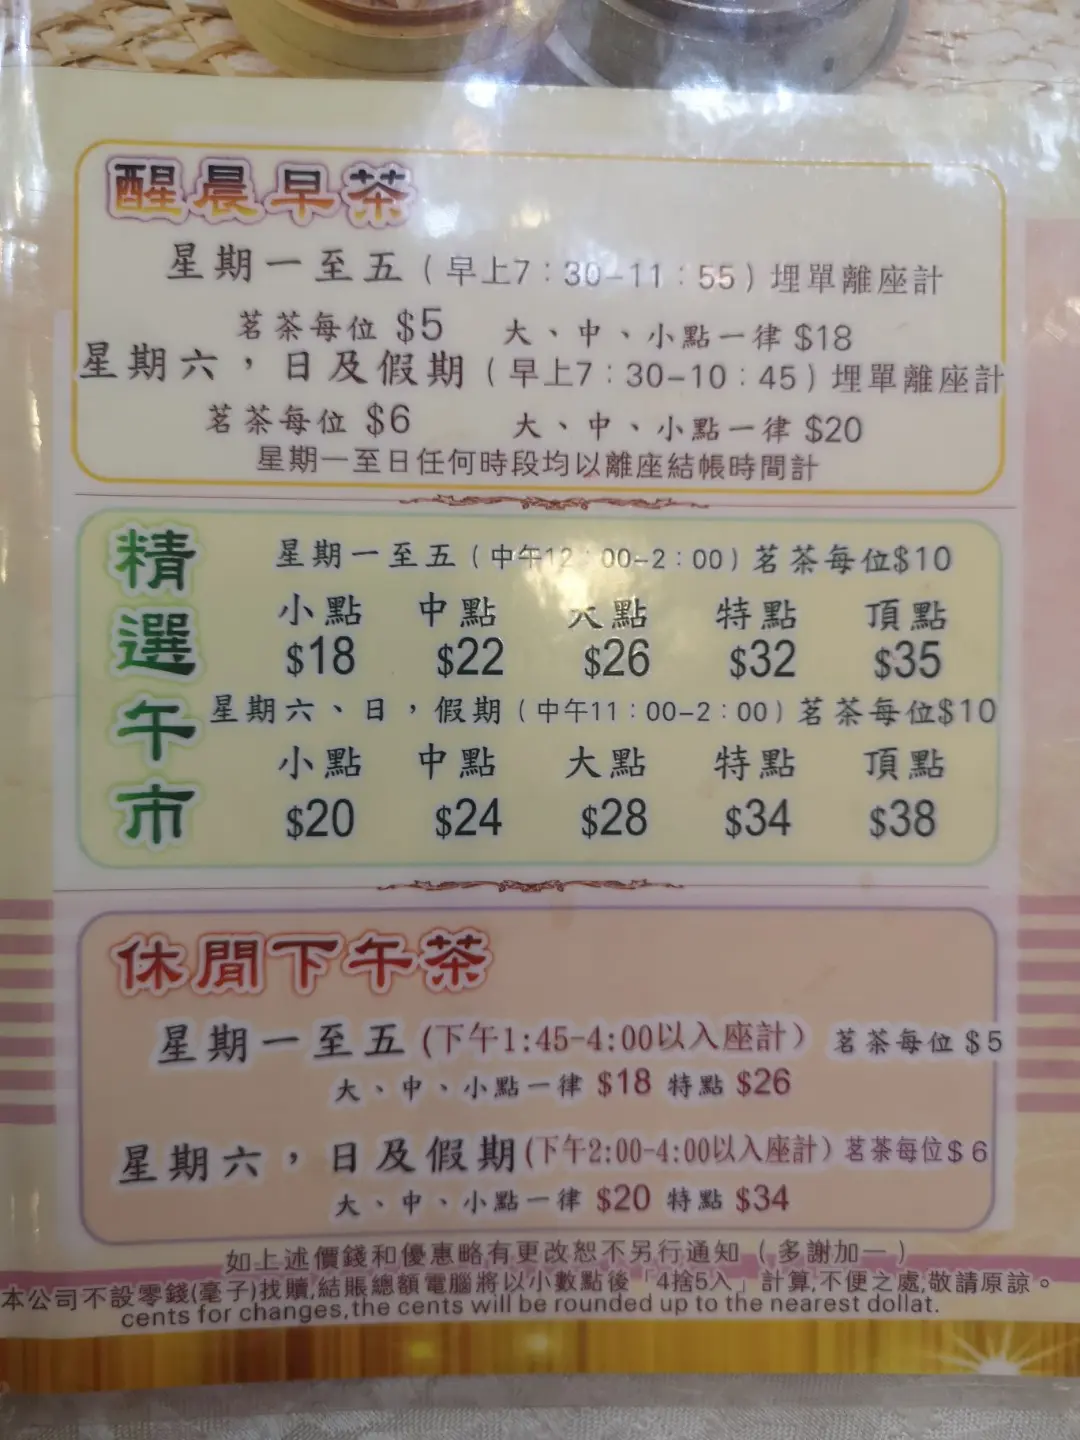 醒晨早茶
星期一至五（早上7：30-11：55）埋單離座計
茗茶每位 $5 大、中、小點一律 $18
星期六，日及假期（早上7：30-10：45）埋單離座計
茗茶每位 $6 大、中、小點一律 $20
星期一至日任何時段均以離座結帳時間計
精選午市
星期一至五（中午12：00-2：00）茗茶每位$10
小點 中點 大點 特點 頂點
$18 $22 $26 $32 $35
星期六、日，假期（中午11：00-2：00）茗茶每位$10
小點 中點 大點 特點 頂點
$20 $24 $28 $34 $38
休閒下午茶
星期一至五(下午1:45-4:00以入座計） 茗茶每位 $5
大、中、小點一律 $18 特點 $26
星期六，日及假期(下午2:00-4:00以入座計）茗茶每位$6
大、中、小點一律 $20 特點 $34
如上述價錢和優惠略有更改恕不另行通知（多謝加一）
本公司不設零錢(毫子)找贖,結賬總額電腦將以小數點後「4捨5入」計算,不便之處,敬請原諒。
cents for changes,the cents will be rounded up to the nearest dollat.